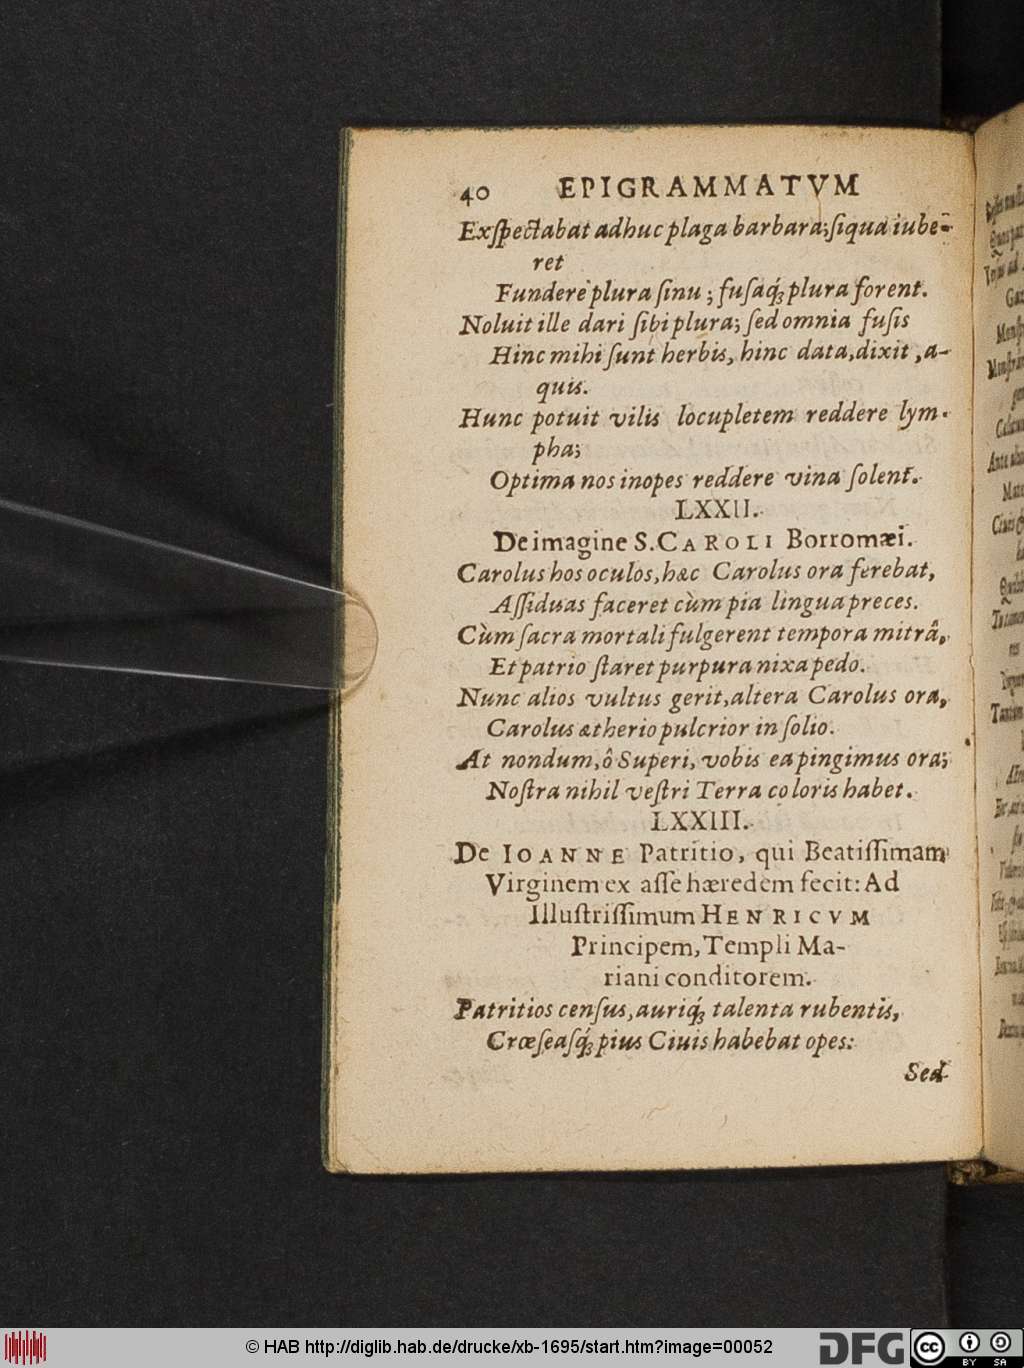 40 EPIGRAMMATVM
Exſpectabat adhuc plaga barbara; ſiqua iube-
ret
Fundere plura ſinu; fuſaq́; plura forent.
Noluit ille dari ſibi plura; ſed omnia fuſis
Hinc mihi ſunt herbis, hinc data, dixit, a-
quis.
Hunc potuit vilis locupletem reddere lym-
pha;
Optima nos inopes reddere vina ſolent.
LXXII.
De imagine S. CAROLI Borromæi.
Carolus hos oculos, hæc Carolus ora ferebat,
Aſſiduas faceret cùm pia lingua preces.
Cùm ſacra mortali fulgerent tempora mitrâ,
Et patrio ſtaret purpura nixa pedo.
Nunc alios vultus gerit, altera Carolus ora,
Carolus ætherio pulcrior in ſolio.
At nondum, ô Superi, vobis ea pingimus ora;
Noſtra nihil veſtri Terra coloris habet.
LXXIII.
De IOANNE Patritio, qui Beatiſſimam
Virginem ex aſſe hæredem fecit: Ad
Illuſtriſſimum HENRICVM
Principem, Templi Ma-
riani conditorem.
Patritios cenſus, auriq́; talenta rubentis,
Crœſeaſq́; pius Ciuis habebat opes:
Sed
© HAB http://diglib.hab.de/drucke/xb-1695/start.htm?image=00052
DFG
cc
BY SA